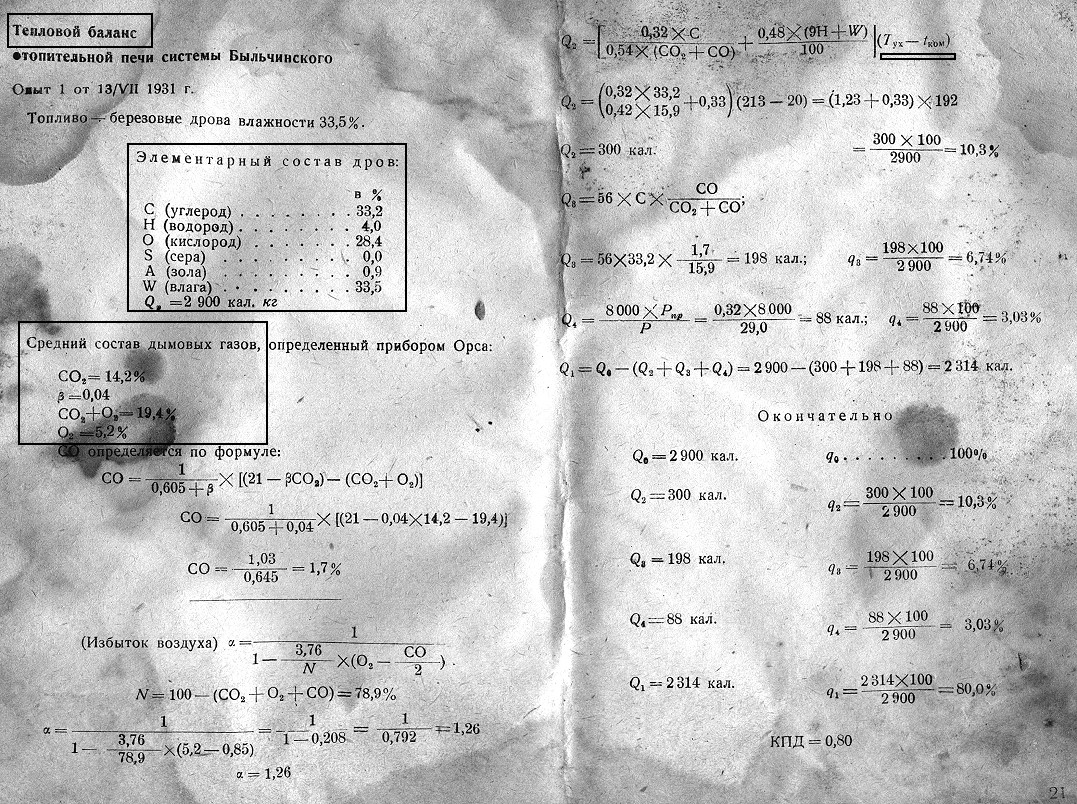 Тепловой баланс
отопительной печи системы Быльчинского
Опыт 1 от 13/VII 1931 г.
Топливо — березовые дрова влажности 33,5%.
Элементарный состав дров:
в %
C (углерод) . . . . . . . . 33,2
H (водород) . . . . . . . . 4,0
O (кислород) . . . . . . . 28,4
S (сера) . . . . . . . . . 0,0
A (зола) . . . . . . . . . 0,9
W (влага) . . . . . . . . . 33,5
=2 900 кал. кг
Средний состав дымовых газов, определенный прибором Орса:
CO₂= 14,2%
β =0,04
CO₂+O₂= 19,4%
O₂ =5,2%
CO определяется по формуле:
CO = 1/(0,605 + β) × [(21 — βCO₂) — (CO₂+ O₂)]
CO = 1/(0,605 + 0,04) × [(21 — 0,04×14,2 — 19,4)]
CO = 1,03/0,645 = 1,7%
(Избыток воздуха) α = 1/(1 — 3,76/N ×(O₂ — CO/2)) .
N = 100 — (CO₂ + O₂ + CO) = 78,9%
α = 1/(1 — 3,76/78,9 ×(5,2 — 0,85)) = 1/(1 — 0,208) = 1/0,792 = 1,26
α = 1,26
Q₂ = [0,32 × C/(0,54 × (CO₂ + CO)) + 0,48×(9H + W)/100] (Tух — tком)
Q₂ = (0,32 × 33,2/(0,42 × 15,9) + 0,33) (213 — 20) = (1,23 + 0,33) × 192
Q₂ = 300 кал. = 300 × 100/2900 = 10,3%
Q₃ = 56 × C × CO/(CO₂ + CO);
Q₃ = 56×33,2 × 1,7/15,9 = 198 кал.; q₃ = 198×100/2 900 = 6,74%
Q₄ = 8 000 × Pпр/P = 0,32×8 000/29,0 = 88 кал.; q₄ = 88 × 100/2 900 = 3,03%
Q₁ = Q₀ — (Q₂ + Q₃ + Q₄) = 2 900 — (300 + 198 + 88) = 2 314 кал.
Окончательно
Q₀ = 2 900 кал. q₀ . . . . . . . . . 100%
Q₂ = 300 кал. q₂ = 300 × 100/2 900 = 10,3%
Q₃ = 198 кал. q₃ = 198 × 100/2 900 = 6,74%
Q₄ = 88 кал. q₄ = 88 × 100/2 900 = 3,03%
Q₁ = 2 314 кал. q₁ = 2 314×100/2 900 = 80,0%
КПД = 0,80
21